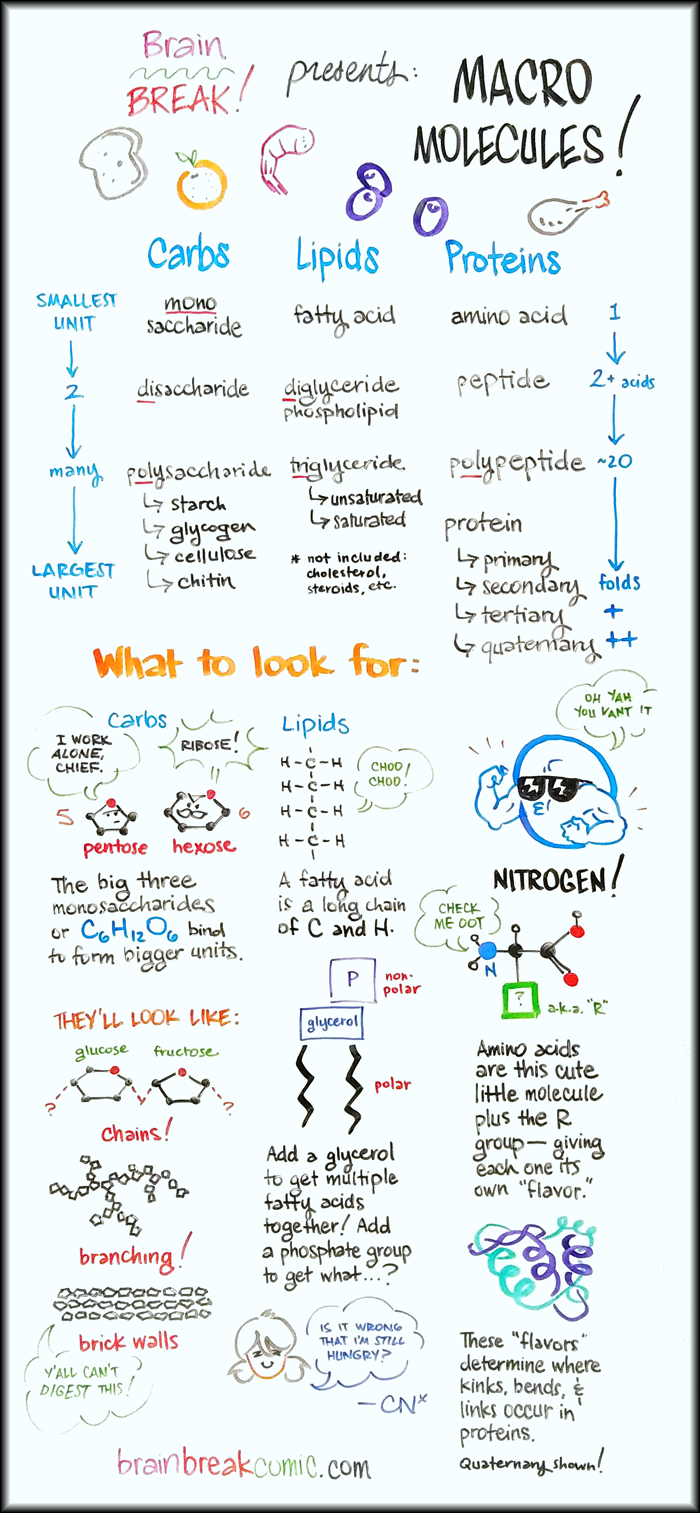 Brain
BREAK!
presents:
MACRO
MOLECULES!
Carbs
Lipids
Proteins
SMALLEST
UNIT
mono
saccharide
fatty acid
amino acid
1
2
disaccharide
diglyceride
phospholipid
peptide
2+ acids
many
polysaccharide
triglyceride.
polypeptide
~20
↳ starch
↳ glycogen
↳ cellulose
↳ chitin
↳ unsaturated
↳ saturated
* not included:
cholesterol,
steroids, etc.
protein
↳ primary
↳ secondary
↳ tertiary
↳ quaternary
folds
+
++
LARGEST
UNIT
What to look for:
Carbs
I WORK
ALONE,
CHIEF.
RIBOSE!
5
6
pentose
hexose
The big three
monosaccharides
or C₆H₁₂O₆ bind
to form bigger units.
THEY'LL LOOK LIKE:
glucose
fructose
?
?
chains!
branching!
brick walls
Y'ALL CAN'T
DIGEST THIS!
Lipids
H-C-H
H-C-H
H-C-H
H-C-H
CHOO!
CHOO!
A fatty acid
is a long chain
of C and H.
P
non-
polar
glycerol
polar
Add a glycerol
to get multiple
fatty acids
together! Add
a phosphate group
to get what...?
IS IT WRONG
THAT I'M STILL
HUNGRY?
-CN*
OH YAH
YOU VANT IT
NITROGEN!
CHECK
ME OOT
N
?
a.k.a. "R"
Amino acids
are this cute
little molecule
plus the R
group— giving
each one its
own "flavor."
These "flavors"
determine where
kinks, bends, &
links occur in
proteins.
Quaternary shown!
brainbreakcomic.com